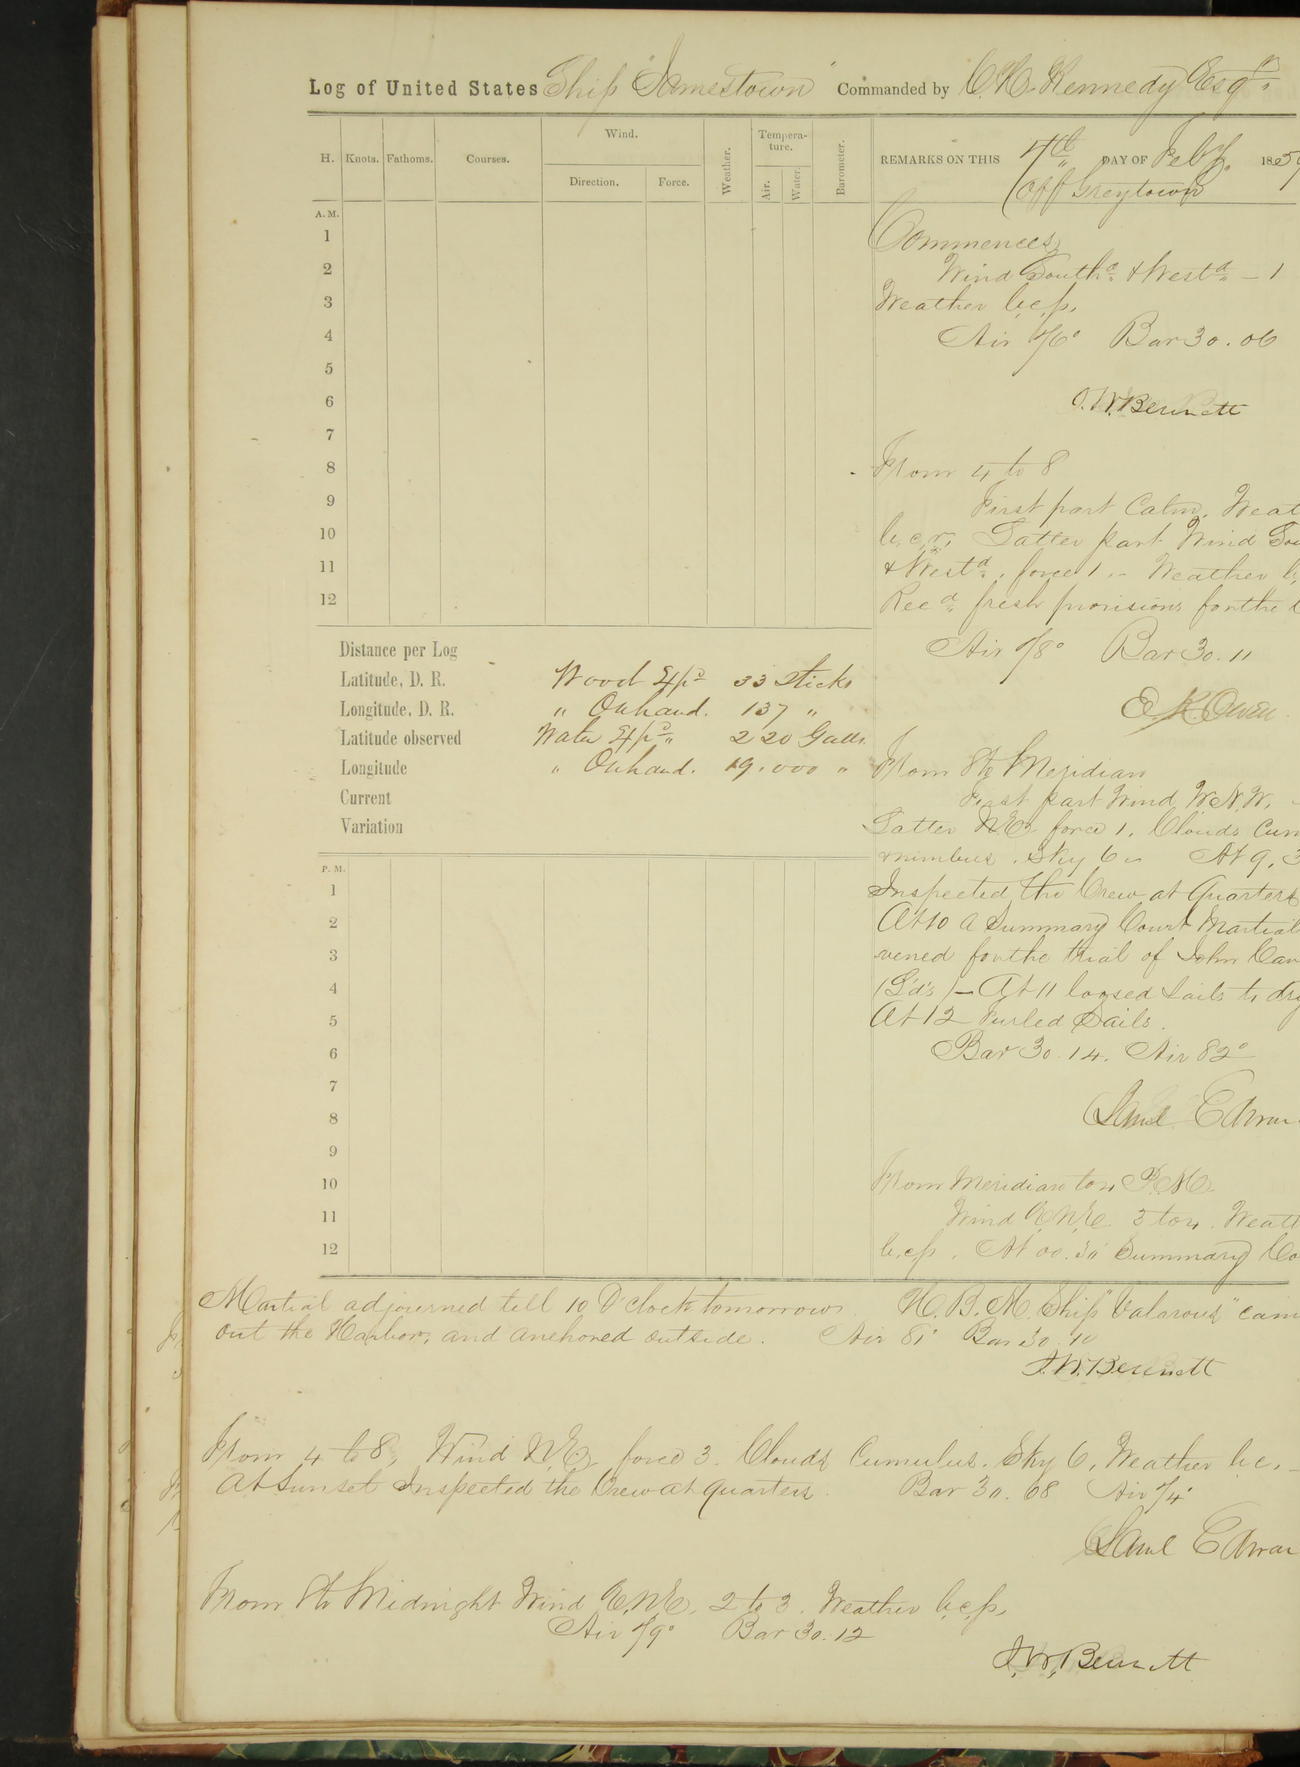 Log of United States Ship "Jamestown" Commanded by C. H. Kennedy Esqr.
H. Knots. Fathoms. Courses. Wind. Direction. Force. Weather. Tempera-ture. Air. Water. Barometer.
REMARKS ON THIS 4th DAY OF Feby. 1859
(Off Greytown
A. M.
1
2
3
4
5
6
7
8
9
10
11
12
Commences,
Wind Southd. & Westd. – 1
Weather b.c.p.
Air 76° Bar 30.06
J. W. Bennett
From 4 to 8
First part Calm. Weat
b.c.r. Latter part Wind Sou
& Westd., force 1. – Weather b.
Recd. fresh provisions for the
Air 78° Bar 30.11
E K. Owen
Distance per Log
Latitude, D. R.
Longitude, D. R.
Latitude observed
Longitude
Current
Variation
Wood Expd 33 Sticks
" On hand. 137 "
Water Expd. 220 Galls.
" On hand. 19.000 "
From 8 to Meridian
First part Wind W.N.W.
Latter N.E. force 1. Clouds Cum
& nimbus. Sky 6. At 9.3
Inspected the Crew at Quarters
At 10 a Summary Court Martial
vened for the trial of John Can
(Ld's) – At 11 loosed Sails to dry
At 12 Furled Sails.
Bar 30.14. Air 82°
Saml Edwar
P. M.
1
2
3
4
5
6
7
8
9
10
11
12
From Meridian to 4 P.M.
Wind E.N.E. 3 to 4. Weat
b.c.p. At 00.30 Summary Co
Martial adjourned till 10 O'clock tomorrow. H. B. M. Ship "Valorous" cam
out the Harbor, and anchored outside. Air 81° Bar 30.10
J. W. Bennett
From 4 to 8, Wind N.E. force 3. Clouds Cumulus. Sky 6, Weather b.c. –
At Sunset Inspected the Crew at Quarters. Bar 30.08 Air 74°
Saml Edwar
From 8 to Midnight Wind E.N.E. 2 to 3. Weather b.c.p.
Air 79° Bar 30.12
J. W. Bennett